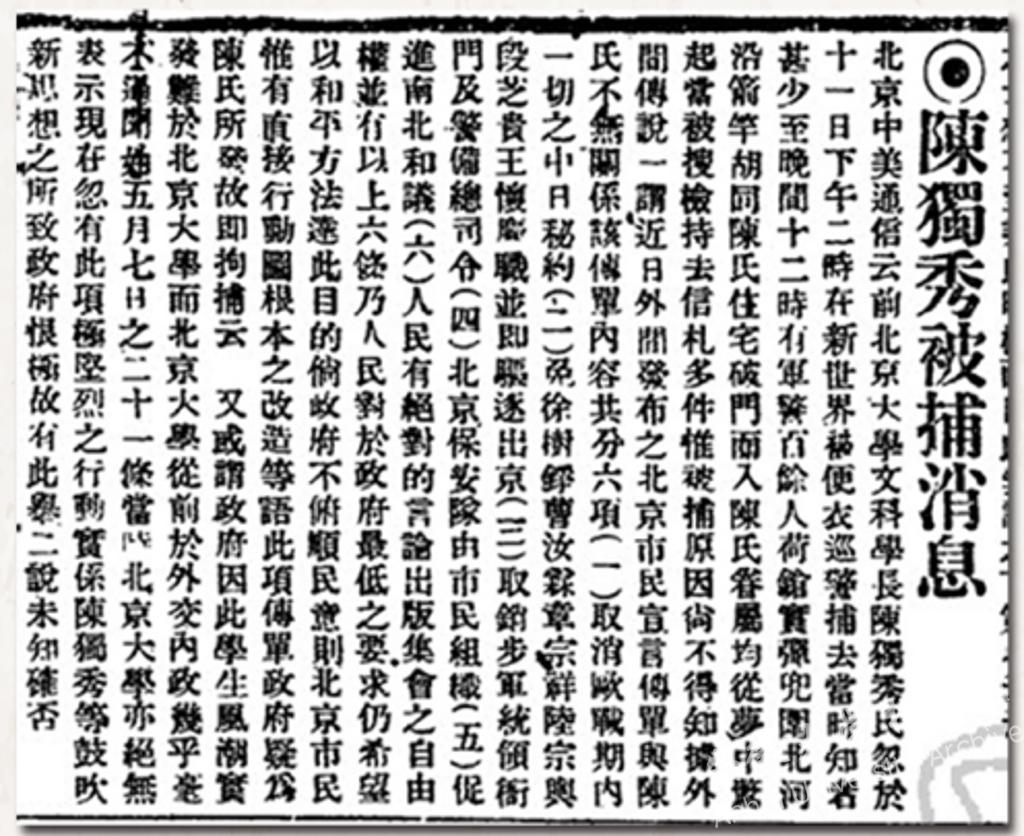 ◉陳獨秀被捕消息
北京中美通信云前北京大學文科學長陳獨秀氏忽於
十一日下午二時在新世界被便衣巡警捕去當時知者
甚少至晚間十二時有軍警百餘人荷鎗實彈兜圍北河
沿箭竿胡同陳氏住宅破門而入陳氏眷屬均從夢中驚
起當被搜檢持去信札多件惟被捕原因尙不得知據外
間傳說一謂近日外間發布之北京市民宣言傳單與陳
氏不無關係該傳單內容共分六項(一)取消歐戰期內
一切之中日秘約(二)免徐樹錚曹汝霖章宗祥陸宗輿
段芝貴王懷慶職並即驅逐出京(三)取銷步軍統領衙
門及警備總司令(四)北京保安隊由市民組織(五)促
進南北和議(六)人民有絕對的言論出版集會之自由
權並有以上六條乃人民對於政府最低之要求仍希望
以和平方法達此目的倘政府不俯順民意則北京市民
惟有直接行動圖根本之改造等語此項傳單政府疑爲
陳氏所發故即拘捕云　又或謂政府因此學生風潮實
發難於北京大學而北京大學從前於外交內政幾乎毫
不 五月七日之二十一條當 北京大學亦絕無
表示現在忽有此項極堅烈之行動實係陳獨秀等鼓吹
新思想之所致政府恨極故有此舉二說未知確否